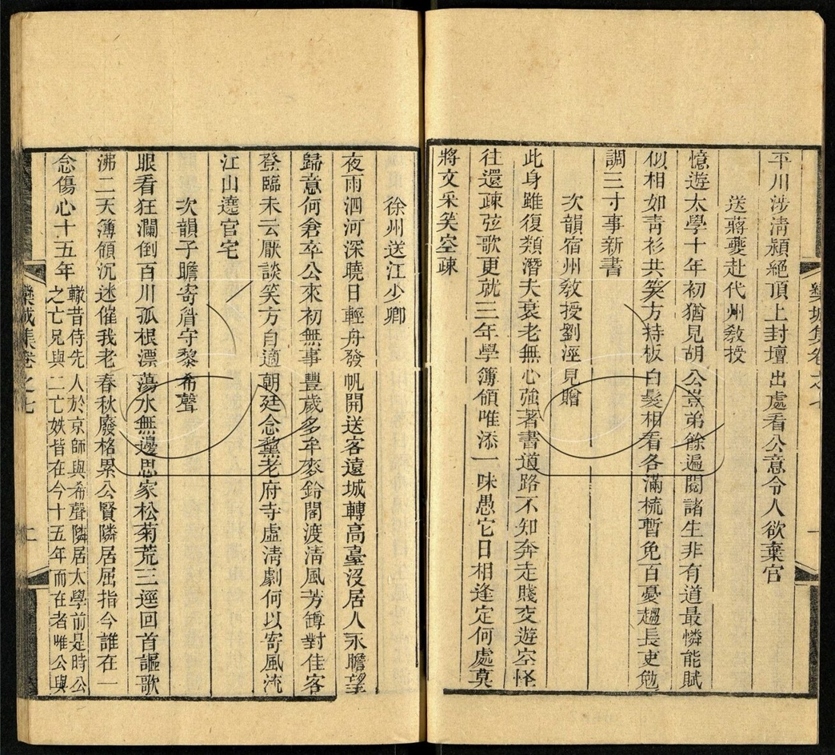 平川涉清潁絕頂上封壇出處看公意令人欲棄官
送蔣夔赴代州敎授
憶遊太學十年初猶見胡公豈弟餘遍閱諸生非有道最憐能賦
似相如靑衫共笑方持板白髮相看各滿梳暫免百憂趨長吏勉
調三寸事新書
次韻宿州敎授劉涇見贈
此身雖復類潛夫衰老無心強著書道路不知奔走賤交遊空怪
往還疎弦歌更就三年學簿領唯添一味愚它日相逢定何處莫
將文采笑空疎
徐州送江少卿
夜雨泗河深曉日輕舟發帆開送客遠城轉高臺沒居人永瞻望
歸意何倉卒公來初無事豐歲多牟麥鈴閣渡清風芳罇對佳客
登臨未云厭談笑方自適朝廷念黧老府寺虛清劇何以寄風流
江山遶官宅
次韻子瞻寄眉守黎希聲
眼看狂瀾倒百川孤根漂蕩水無邊思家松菊荒三逕回首謳歌
沸二天簿領沉迷催我老春秋廢格累公賢隣居屈指今誰在一
念傷心十五年
轍昔侍先人於京師與希聲隣居太學前是時公
之亡兄與二亡姪皆在今十五年而在者唯公與
欒城集卷之七